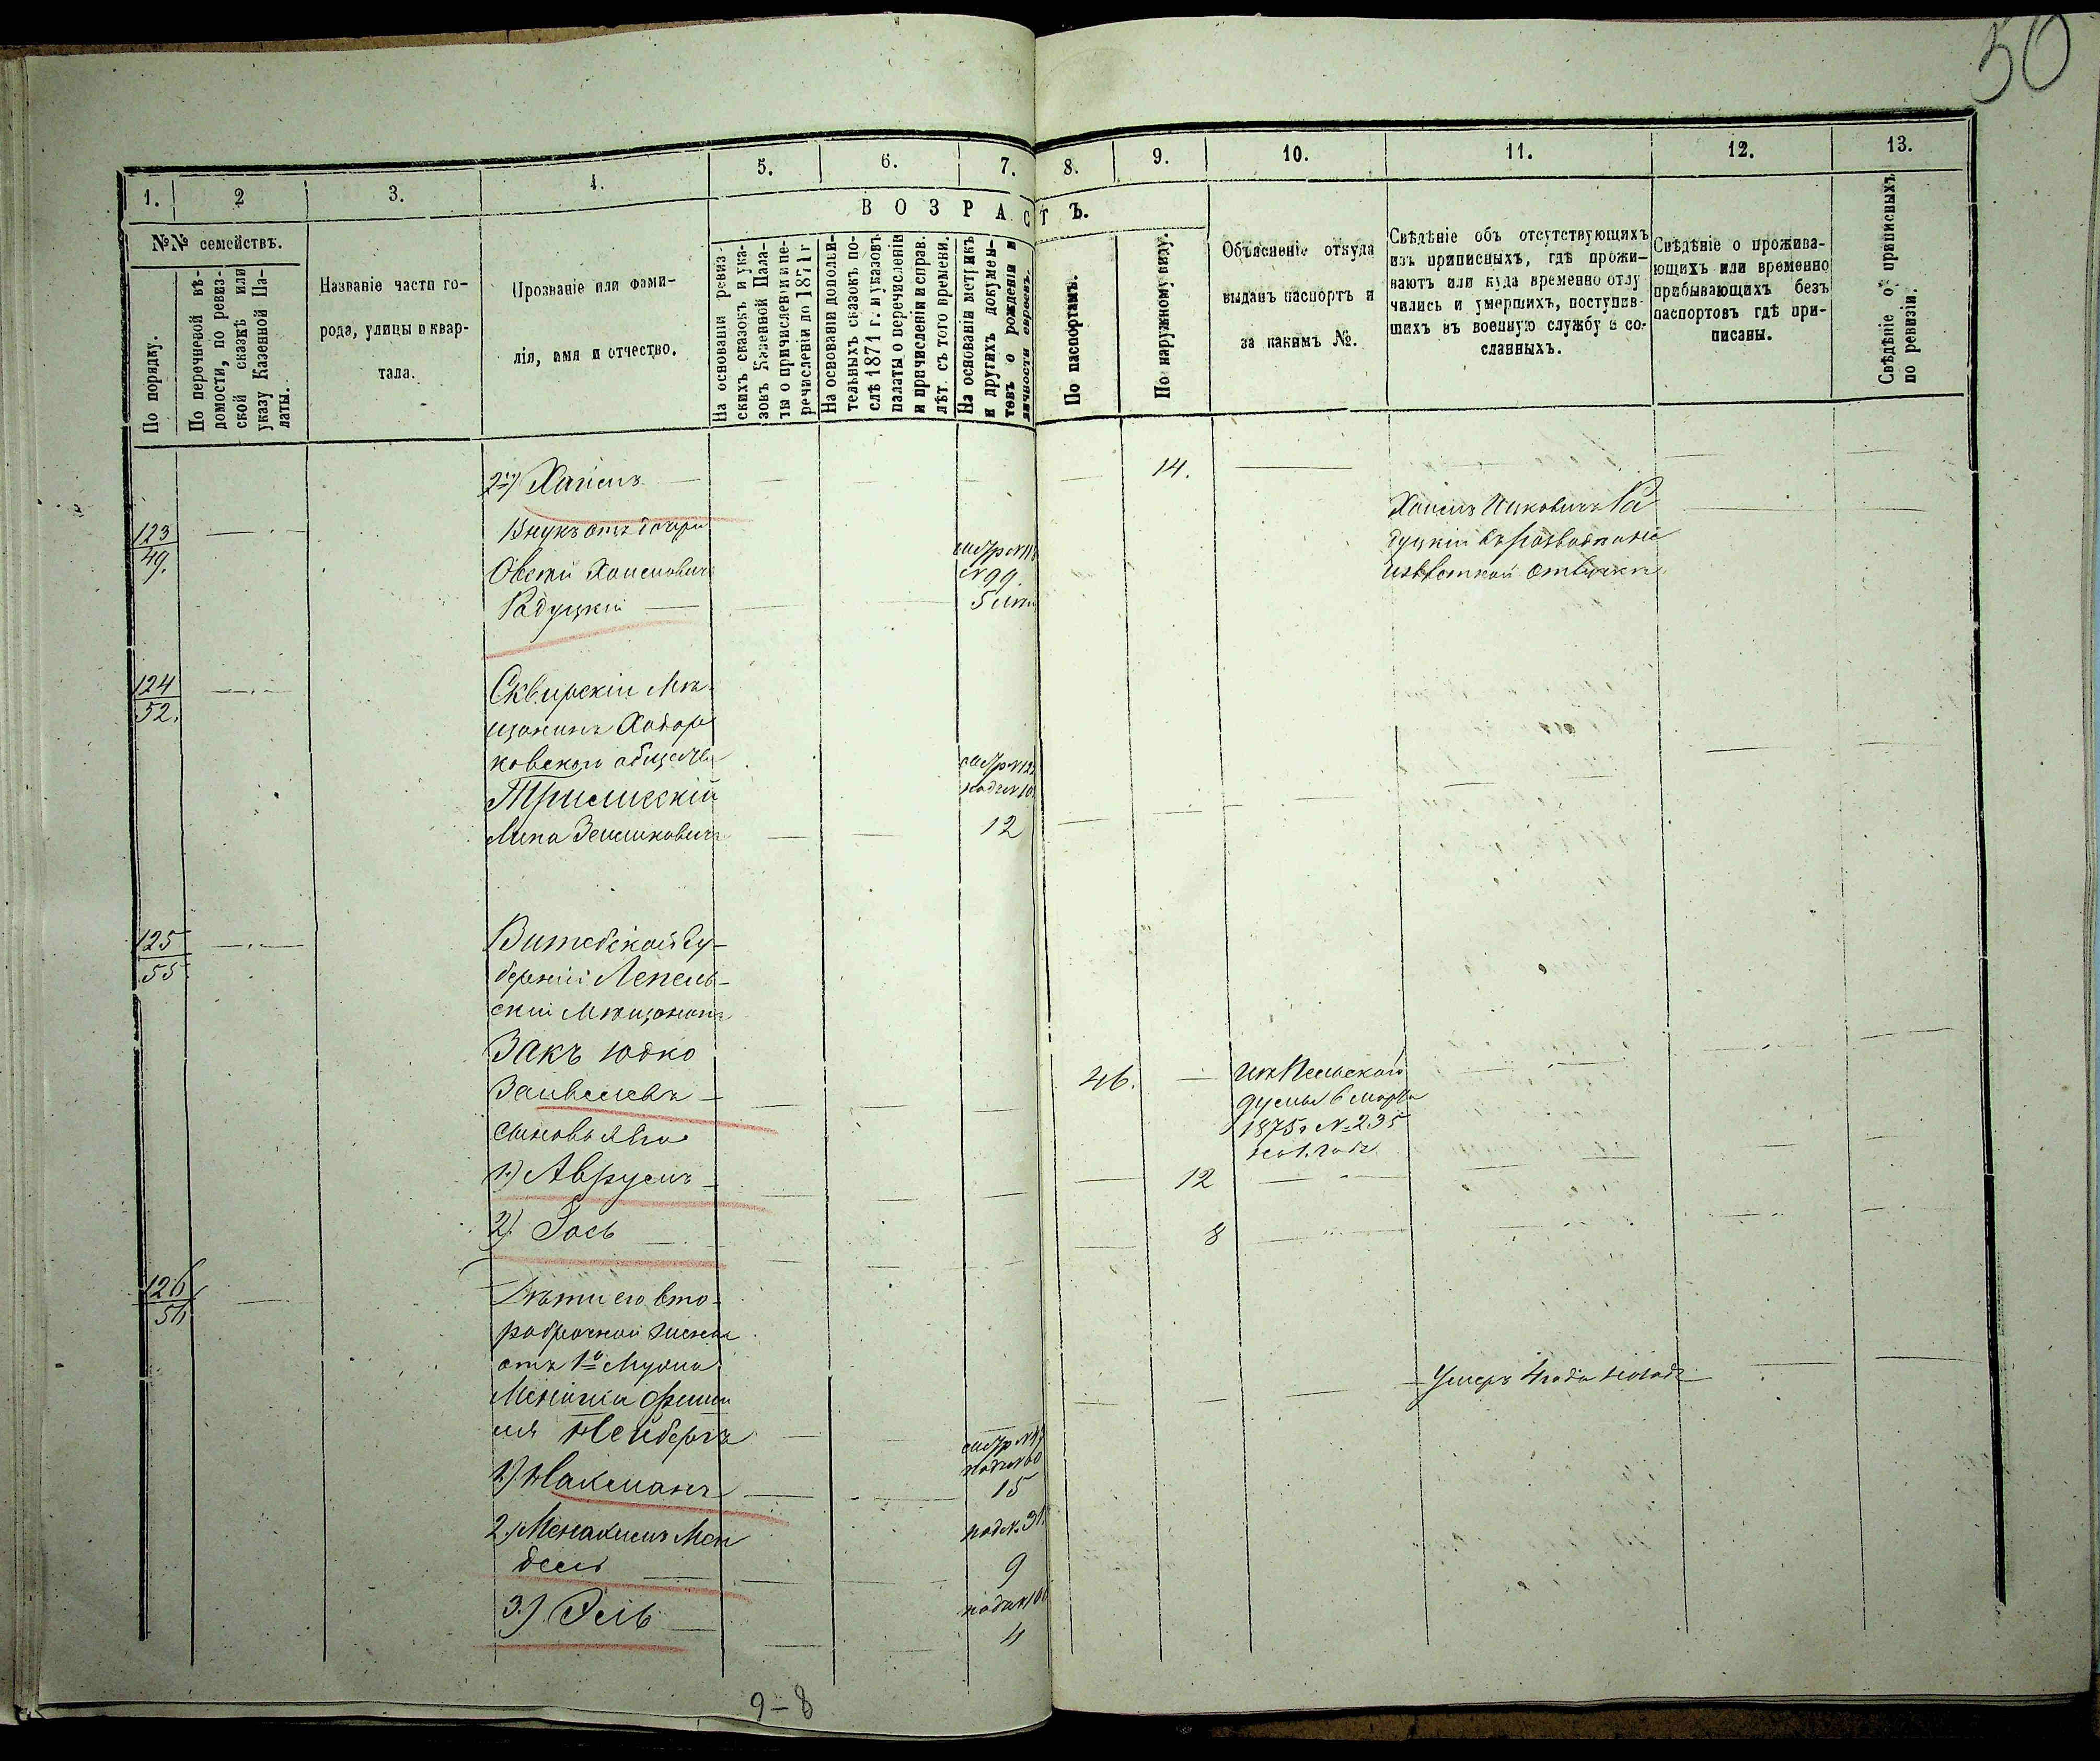 50
1. 2 3. 4. 5. 6. 7. 8. 9. 10. 11. 12. 13.
№№ семействъ.
По порядку.
По перечневой вѣ-
домости, по ревиз-
ской сказкѣ или
указу Казенной Па-
латы.
Названіе части го-
рода, улицы и квар-
тала.
Прозваніе или фами-
лія, имя и отчество.
ВОЗРАСТЪ.
На основаніи ревиз-
скихъ сказокъ и ука-
зовъ Казенной Пала-
ты о причисленіи и пе-
речисленіи до 1871 г
На основаніи дополни-
тельныхъ сказокъ по-
слѣ 1871 г. и указовъ
палаты о перечисленіи
и причисленіи и справ.
лѣт. съ того времени.
На основаніи метрикъ
и другихъ докумен-
товъ о рожденіи и
личности евреевъ.
По паспортамъ.
По наружному виду.
Объясненіе откуда
выданъ паспортъ и
за какимъ №.
Свѣдѣніе объ отсутствующихъ
изъ приписныхъ, гдѣ прожи-
ваютъ или куда временно отлу
чились и умершихъ, поступив-
шихъ въ военную службу и со-
сланныхъ.
Свѣдѣніе о прожива-
ющихъ или временно
прибывающихъ безъ
паспортовъ гдѣ при-
писаны.
Свѣдѣніе о приписныхъ
по ревизіи.
2й) Хаимъ — 14.
123
49.
Внукъ отъ дочери
Овсей Хаимовичъ
Радуцкій
№ 99.
5
Хаимъ Ицковичъ Ра
дуцкій въ
124
52.
Сквирскій Мѣ-
щанинъ Ходор
ковскаго общества
Трилисскій
Липа Зельмановичъ
12
125
55
Витебской Гу-
берніи Лепель-
скій Мѣщанинъ
Закъ Юдко
Зайвелевъ —
сыновья его
46.
думы 6 марта
1875 г № 235
на 1. годъ
1.) Аврумъ — 12
2) Іось — 8
126
56
Дѣти его вто-
робрачной жены
отъ 1го Мужа
фами
лія Нейбергъ
Умеръ 4 года назадъ
1) Нахманъ —
15
2.) Менахимъ Мен
дель —
9
3.) Эль —
4
9-8